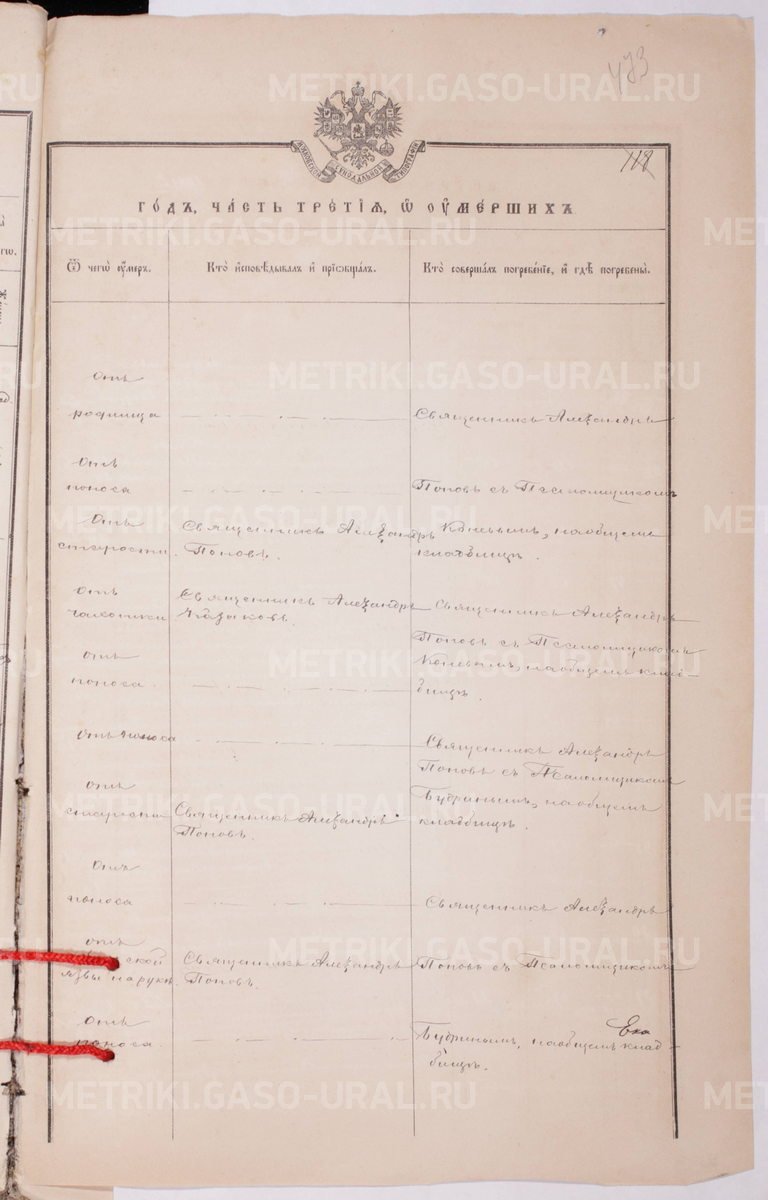 473
METRIKI.GASO-URAL.RU
118
МОСКОВСКОЙ СѴНОДАЛЬНОЙ ТИПОГРАФІИ
ГО́ДЪ, ЧА́СТЬ ТРЕ́ТІѦ, Ѡ҆ ОУ҆МЕ́РШИХЪ
Ѿ чегѡ̀ оу҆́меръ.
Кто̀ и҆сповѣ́дывалъ и҆ прїѡбща́лъ.
Кто̀ соверша́лъ погребе́нїе, и҆ гдѣ̀ погребены̀.
отъ
родимца
Священникъ Александръ
отъ
поноса
Поповъ съ Псаломщикомъ
отъ
старости.
Священникъ Александръ
Поповъ.
Коневымъ, на общемъ
кладбищѣ.
отъ
чахотки
Священникъ Александръ
Священникъ Александръ
Поповъ съ Псаломщикомъ
отъ
поноса
Коневымъ, на общемъ клад-
бищѣ.
отъ поноса
Священникъ Александръ
Поповъ съ Псаломщикомъ
отъ
старости
Священникъ Александръ
Поповъ.
Будринымъ, на общемъ
кладбищѣ.
отъ
поноса
Священникъ Александръ
отъ
ской
язвы на рукѣ.
Священникъ Александръ
Поповъ.
Поповъ съ Псаломщикомъ
отъ
поноса.
Будринымъ, на общемъ клад-
бищѣ.